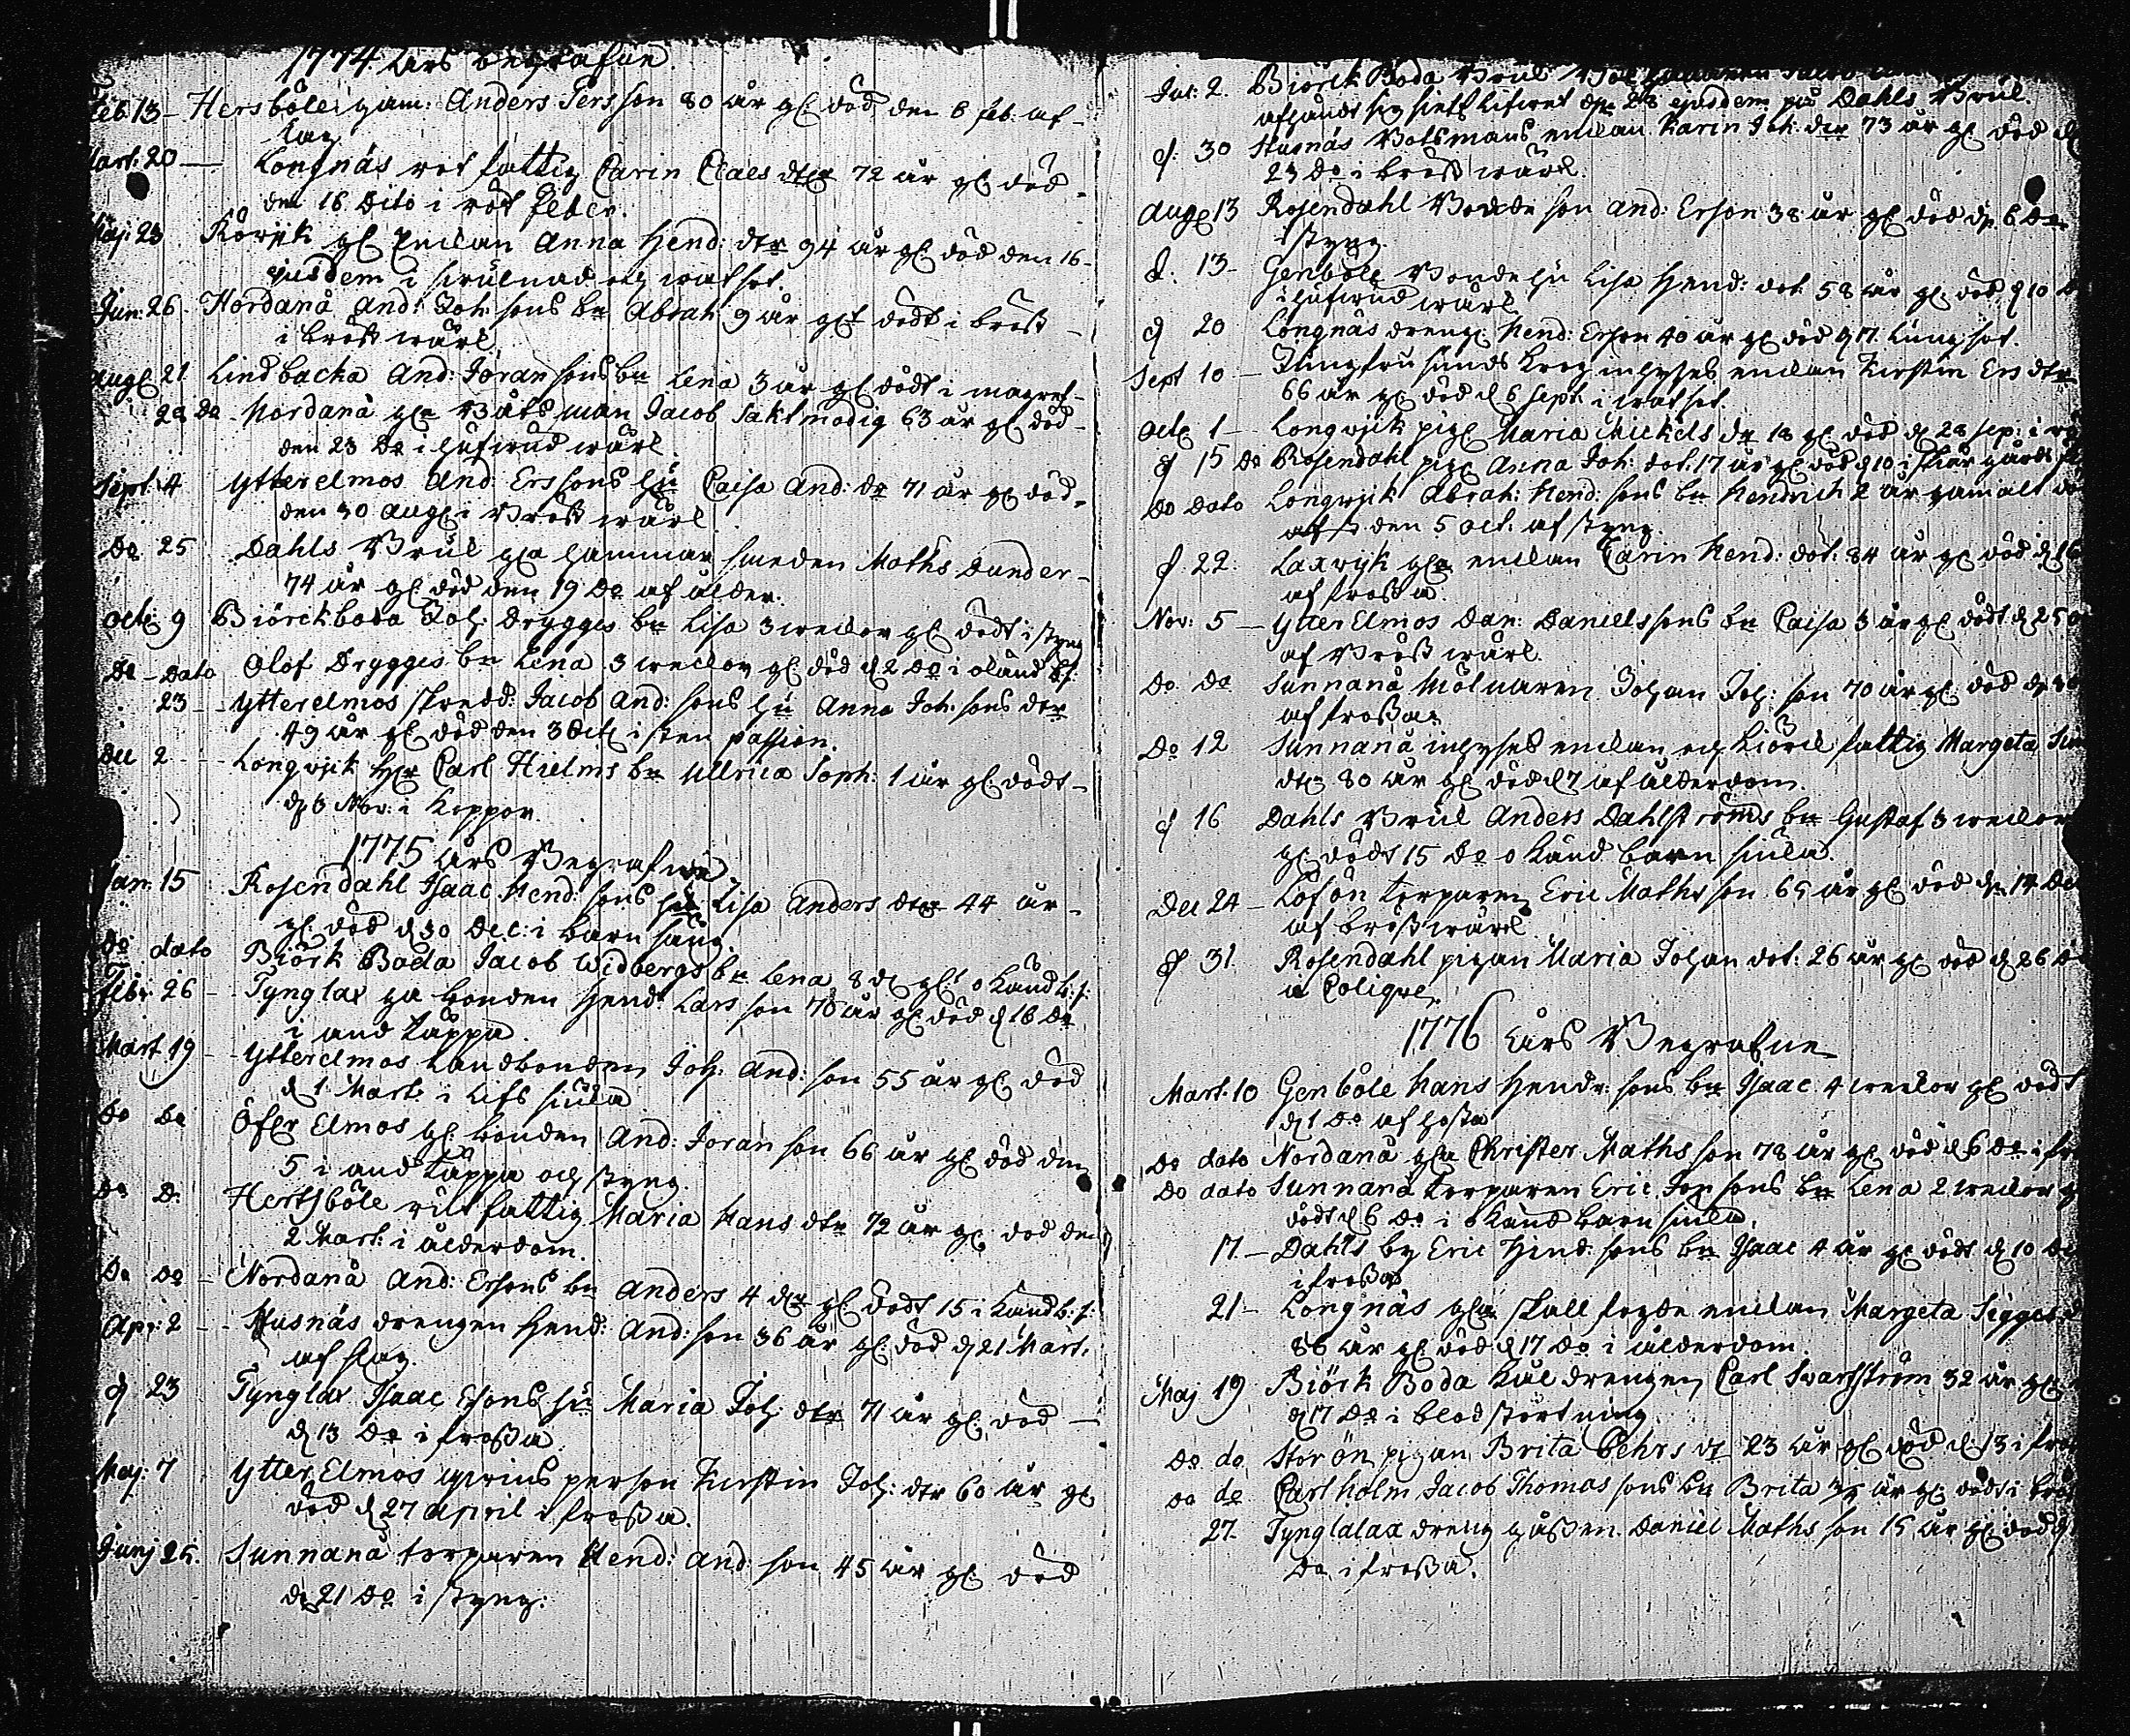 1774 åhrs begrafne
Feb. 13 - Hersböle gam: Anders Persson 80 år gl. död den 6 feb: af
slag
Mart. 20 - Longnäs rot fattig Carin Claes dter 72 år gl. död
den 16 Dito i röt feber.
Maj. 23 Rövjik gl. Enckan Anna Hend: dtr 94 år gl. död den 16
ejusdem i swulnad och watsot.
Jun: 26 - Nordanå And: Joh: sons bn Abrah: 9 år glt dödt i bröst
i bröst wärk
Aug: 21 Lindbacka And: Jöran sons bn Lena 3 år gl. dödt i magref
28 Do - Nordanå gla Båtsman Jacob Saktmodig 63 år gl. död
den 23 Do i hufwud wärk
Sept. 4 Ytterelmos And: Erssons hu Caisa And: dr 71 år gl. död
den 30 Aug: i Bröst wärk
Do 25 Dahls Bruk gla hammar smeden Maths Dunder
74 år gl. död den 19 Do af ålder.
Octo: 9 Biörckboda Joh: Drygges bn Lisa 3 weckor gl. dödt i styng
Do - Dato Olof Drygges bn Lena 3 weckor gl. död d. 2 Do i okänd bs:
23 - Ytterelmos skredd: Jacob And: sons hu Anna Joh: sons dtr
49 år gl. död den 3 Octo i sten passion.
Dec 2 - Longwjk Carl Hielms bn Ullrica Soph: 1 år gl. dödt
d. 6 Nov: i koppor.
1775 åhrs Begrafne
Jan. 15 Rosendahl Isaac Hend: sons hu Lisa Anders dter 44 år
gl. död d. 30 Dec: i barn säng
Do dato Biörk Boda Jacob Widbergs bn Lena 8 d. glt okänd b: s:
Febr 26 - Tynglax ga bonden Hend: Lars son 70 år gl. död d. 18 Do
i and täppa
Mart 19 - Ytterelmos Landbonden Joh: And: son 55 år gl. död
d. 1 Mart: i lifs siuka
Do Do Öfer Elmos gl. bonden And: Joran son 66 år gl. död den
5 i and täppa och styng.
Do D: Hertsböle rut fattig Maria Hans dtr 72 år gl. död den
2 Mart: i ålderdom.
Do Do - Nordanå And: Ersons bn Anders 4 dgr gl. dödt 15 i känd b: s:
Apr: 2 - Husnäs drengen Hend: And: son 36 år gl. död d. 21 Mart.
af slag.
d 23 Tynglax Isaac Ersons hu Maria Joh: dtr 71 år gl. död
d. 13 Do i frossa
Maj: 7 Ytter Elmos person Kirstin Joh: dtr 60 år gl.
död d. 27 April i frossa.
Junj 25. Sunnanå torparen Hend: And: son 45 år gl. död
d. 21 Do i styng:
Jul: 2. Biörck Boda Bruk
afhändt sig sielf lifwet d. 28 ejusdem på Dahls Bruk.
d: 30 Husnäs Botsmans enckan Karin Joh: dtr 73 år gl. död d.
23 Do i bröst wärk.
Aug: 13 Rosendahl Bonde son And: Erson 38 år gl. död d. 6 Do
i styng
d: 13 - Genböle Bonde hu Lisa Hend: dot. 58 år gl. död d. 10
i hufwud wärk
d 20 Longnäs dreng: Hend: Erson 40 år gl. död d. 17. Lung sot.
Sept 10 - Jungfru sunds krog inhyses enckan Kirstin Ers dtr
66 år gl. död d. 6 Sept: i wat sot.
Octo 1 - Longwjk pig: Maria Mickels dr 18 gl. död d. 28 Sep: i
d 15 Do Rosendahl pig: Anna Joh: dot: 17 år gl. död d. 10 i
Do Dato Longwjk Abrah: Hend: sons bn Hendrich 2 år gamalt
den 5 Oct. af styng
d. 22. Laxwjk gla enckan Carin Hend: dot: 84 år gl. död d. 16
af frossa.
Nov: 5 - Ytter Elmos Dan: Danielssons bn Caisa 3 år gl. dödt d. 25
af Bröst wärk.
Do Do Sunnanå Mölnaren Johan Joh: son 70 år gl. död d. 30
af frossa
Do 12 Sunnanå inhyses enckan och kiörck fattig Margeta
dtr 80 år gl. död d. 7 af ålderdom.
d 16 Dahls Bruk Anders Dahlströms bn Gustaf 3 weckor
gl. dödt 15 Do okänd barn siuka.
Dec 24 - Löfön torparen Eric Maths son 65 år gl. död d. 14 Do
af bröstwärk
d 31. Rosendahl pigan Maria Johan dot: 26 år gl. död d. 26
a Colique.
1776 åhrs Begrafne
Mart. 10 Genböle Hans Hendr: sons bn Isaac 4 weckor gl. dödt
d. 1 Do af hosta
Do dato Nordanå gla Christer Maths son 78 år gl. död d. 6 Do i
Do dato Sunnanå torparen Eric Jon sons bn Lena 2 weckor
dödt d. 6 Do i okänd barn siuka.
17. - Dahls by Eric Hind: sons bn Isaac 4 år gl. dödt d. 10
i frossa
21 - Longnäs gla skall fogde enckan Margeta Sigges
86 år gl. död d. 17 Do i ålderdom.
Maj 19 Biörk Boda kål drengen Carl Svartström 32 år gl.
d. 17 Do i blod störtning
Do do Stor ön pigan Brita Pehrs dr 23 år gl. död d. 13 i
Do do Carl holm Jacob Thomas sons bn Brita 3/4 år gl. dödt i
27. Tynglalax dreng gåssen Daniel Maths son 15 år gl. död d.
Do i frossa.